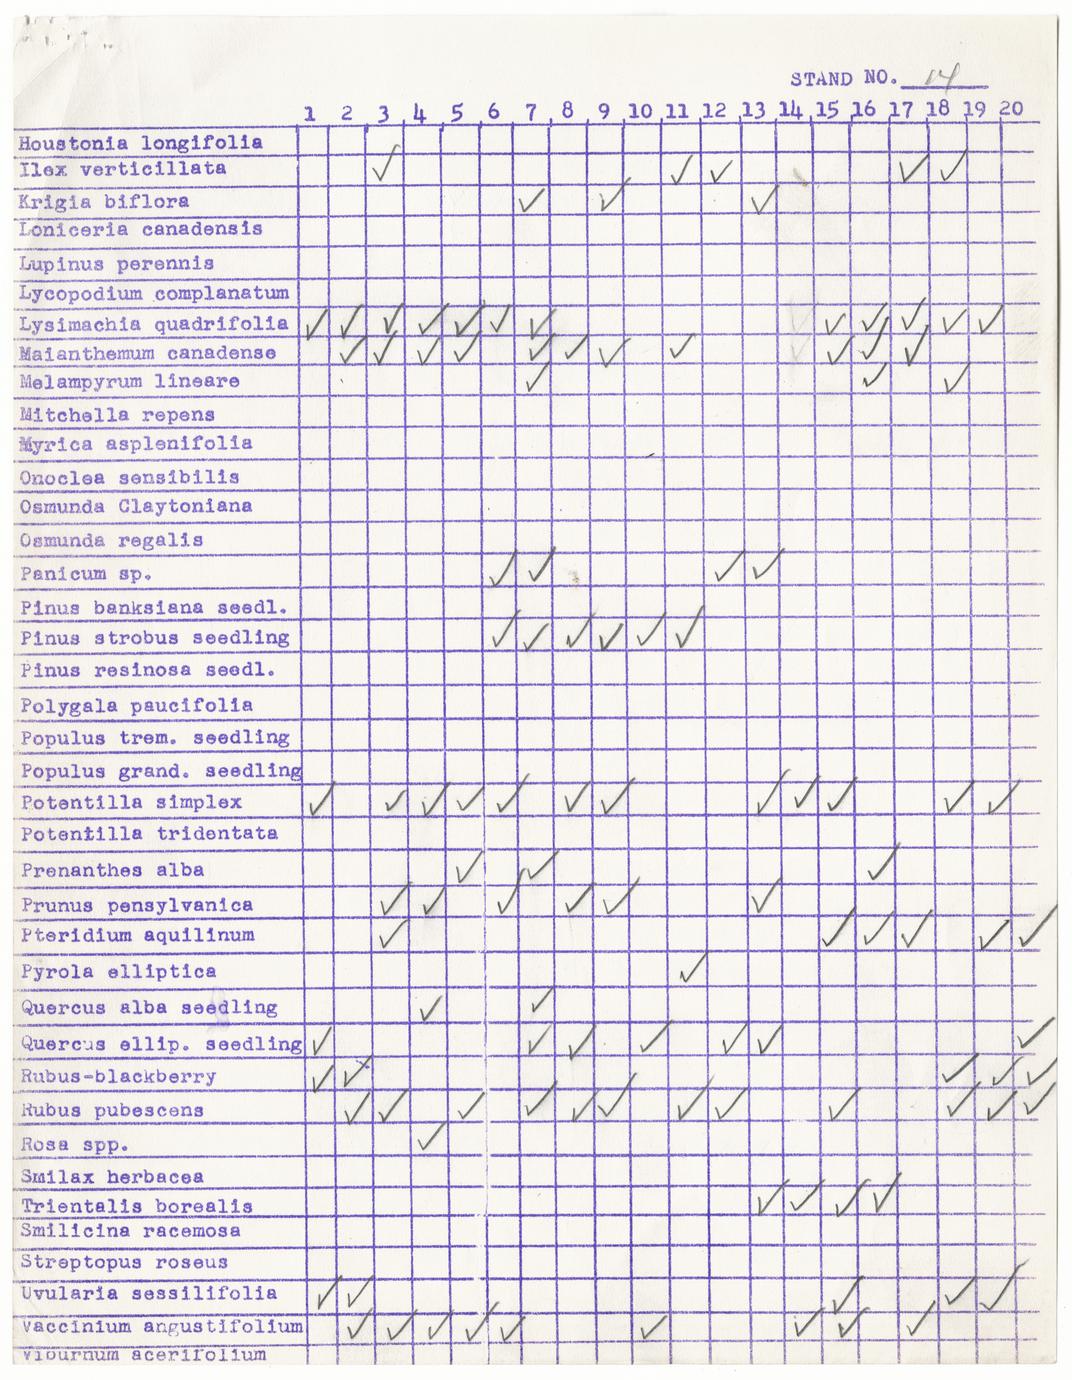 STAND NO. 14
1 2 3 4 5 6 7 8 9 10 11 12 13 14 15 16 17 18 19 20
Houstonia longifolia
Ilex verticillata ✓ ✓ ✓ ✓ ✓
Krigia biflora ✓ ✓ ✓
Loniceria canadensis
Lupinus perennis
Lycopodium complanatum
Lysimachia quadrifolia ✓ ✓ ✓ ✓ ✓ ✓ ✓ ✓ ✓ ✓ ✓ ✓
Maianthemum canadense ✓ ✓ ✓ ✓ ✓ ✓ ✓ ✓ ✓ ✓ ✓
Melampyrum lineare ✓ ✓ ✓
Mitchella repens
Myrica asplenifolia
Onoclea sensibilis
Osmunda Claytoniana
Osmunda regalis
Panicum sp. ✓ ✓ ✓ ✓
Pinus banksiana seedl.
Pinus strobus seedling ✓ ✓ ✓ ✓ ✓ ✓
Pinus resinosa seedl.
Polygala paucifolia
Populus trem. seedling
Populus grand. seedling
Potentilla simplex ✓ ✓ ✓ ✓ ✓ ✓ ✓ ✓ ✓ ✓ ✓ ✓
Potentilla tridentata
Prenanthes alba ✓ ✓ ✓
Prunus pensylvanica ✓ ✓ ✓ ✓ ✓ ✓
Pteridium aquilinum ✓ ✓ ✓ ✓ ✓ ✓
Pyrola elliptica ✓
Quercus alba seedling ✓ ✓
Quercus ellip. seedling ✓ ✓ ✓ ✓ ✓ ✓ ✓
Rubus-blackberry ✓ ✓ ✓ ✓ ✓
Rubus pubescens ✓ ✓ ✓ ✓ ✓ ✓ ✓ ✓ ✓ ✓ ✓ ✓
Rosa spp. ✓
Smilax herbacea
Trientalis borealis ✓ ✓ ✓ ✓
Smilicina racemosa
Streptopus roseus
Uvularia sessilifolia ✓ ✓ ✓ ✓ ✓
Vaccinium angustifolium ✓ ✓ ✓ ✓ ✓ ✓ ✓ ✓ ✓
Viburnum acerifolium